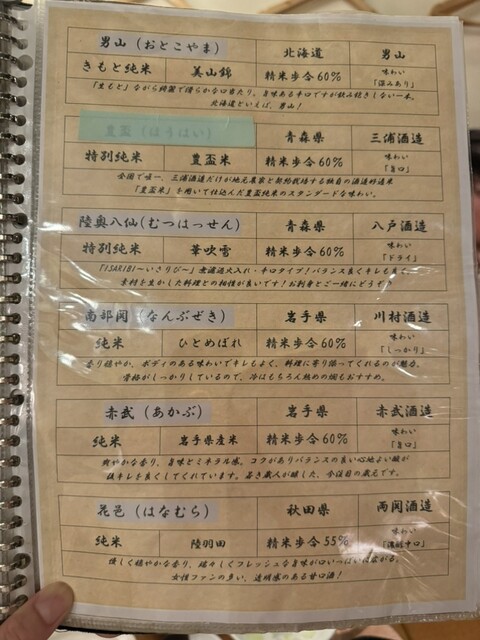 男山（おとこやま） 北海道 男山
きもと純米 美山錦 精米歩合60% 味わい「深みあり」
「生もと」ながら綺麗で滑らかな口当たり、旨味ある辛口ですが飲み飽きしない一本。
北海道といえば、男山！
豊盃（ほうはい） 青森県 三浦酒造
特別純米 豊盃米 精米歩合60% 味わい「旨口」
全国で唯一、三浦酒造だけが地元農家と契約栽培する独自の酒造好適米
「豊盃米」を用いて仕込んだ豊盃純米のスタンダードな味わい。
陸奥八仙（むつはっせん） 青森県 八戸酒造
特別純米 華吹雪 精米歩合60% 味わい「ドライ」
「ISARIBI〜いさりび〜」無濾過火入れ・辛口タイプ！バランス良くキレも良く、
素材を生かした料理との相性が良いです！お刺身とご一緒にどうぞ！
南部関（なんぶぜき） 岩手県 川村酒造
純米 ひとめぼれ 精米歩合60% 味わい「しっかり」
香り穏やか、ボディのある味わいでキレもよく、料理に寄り添ってくれるのが魅力。
骨格がしっかりしているので、冷はもちろん熱めの燗もおすすめ。
赤武（あかぶ） 岩手県 赤武酒造
純米 岩手県産米 精米歩合60% 味わい「旨口」
爽やかな香り、旨味とミネラル感。コクがありバランスの良い心地よい酸が
後キレを良くしてくれています。若き蔵人が醸した、今注目の蔵元です。
花邑（はなむら） 秋田県 両関酒造
純米 陸羽田 精米歩合55% 味わい「濃醇辛口」
優しく穏やかな香り、瑞々しくフレッシュな旨味が口いっぱいに広がる。
女性ファンの多い、透明感のある甘口酒！